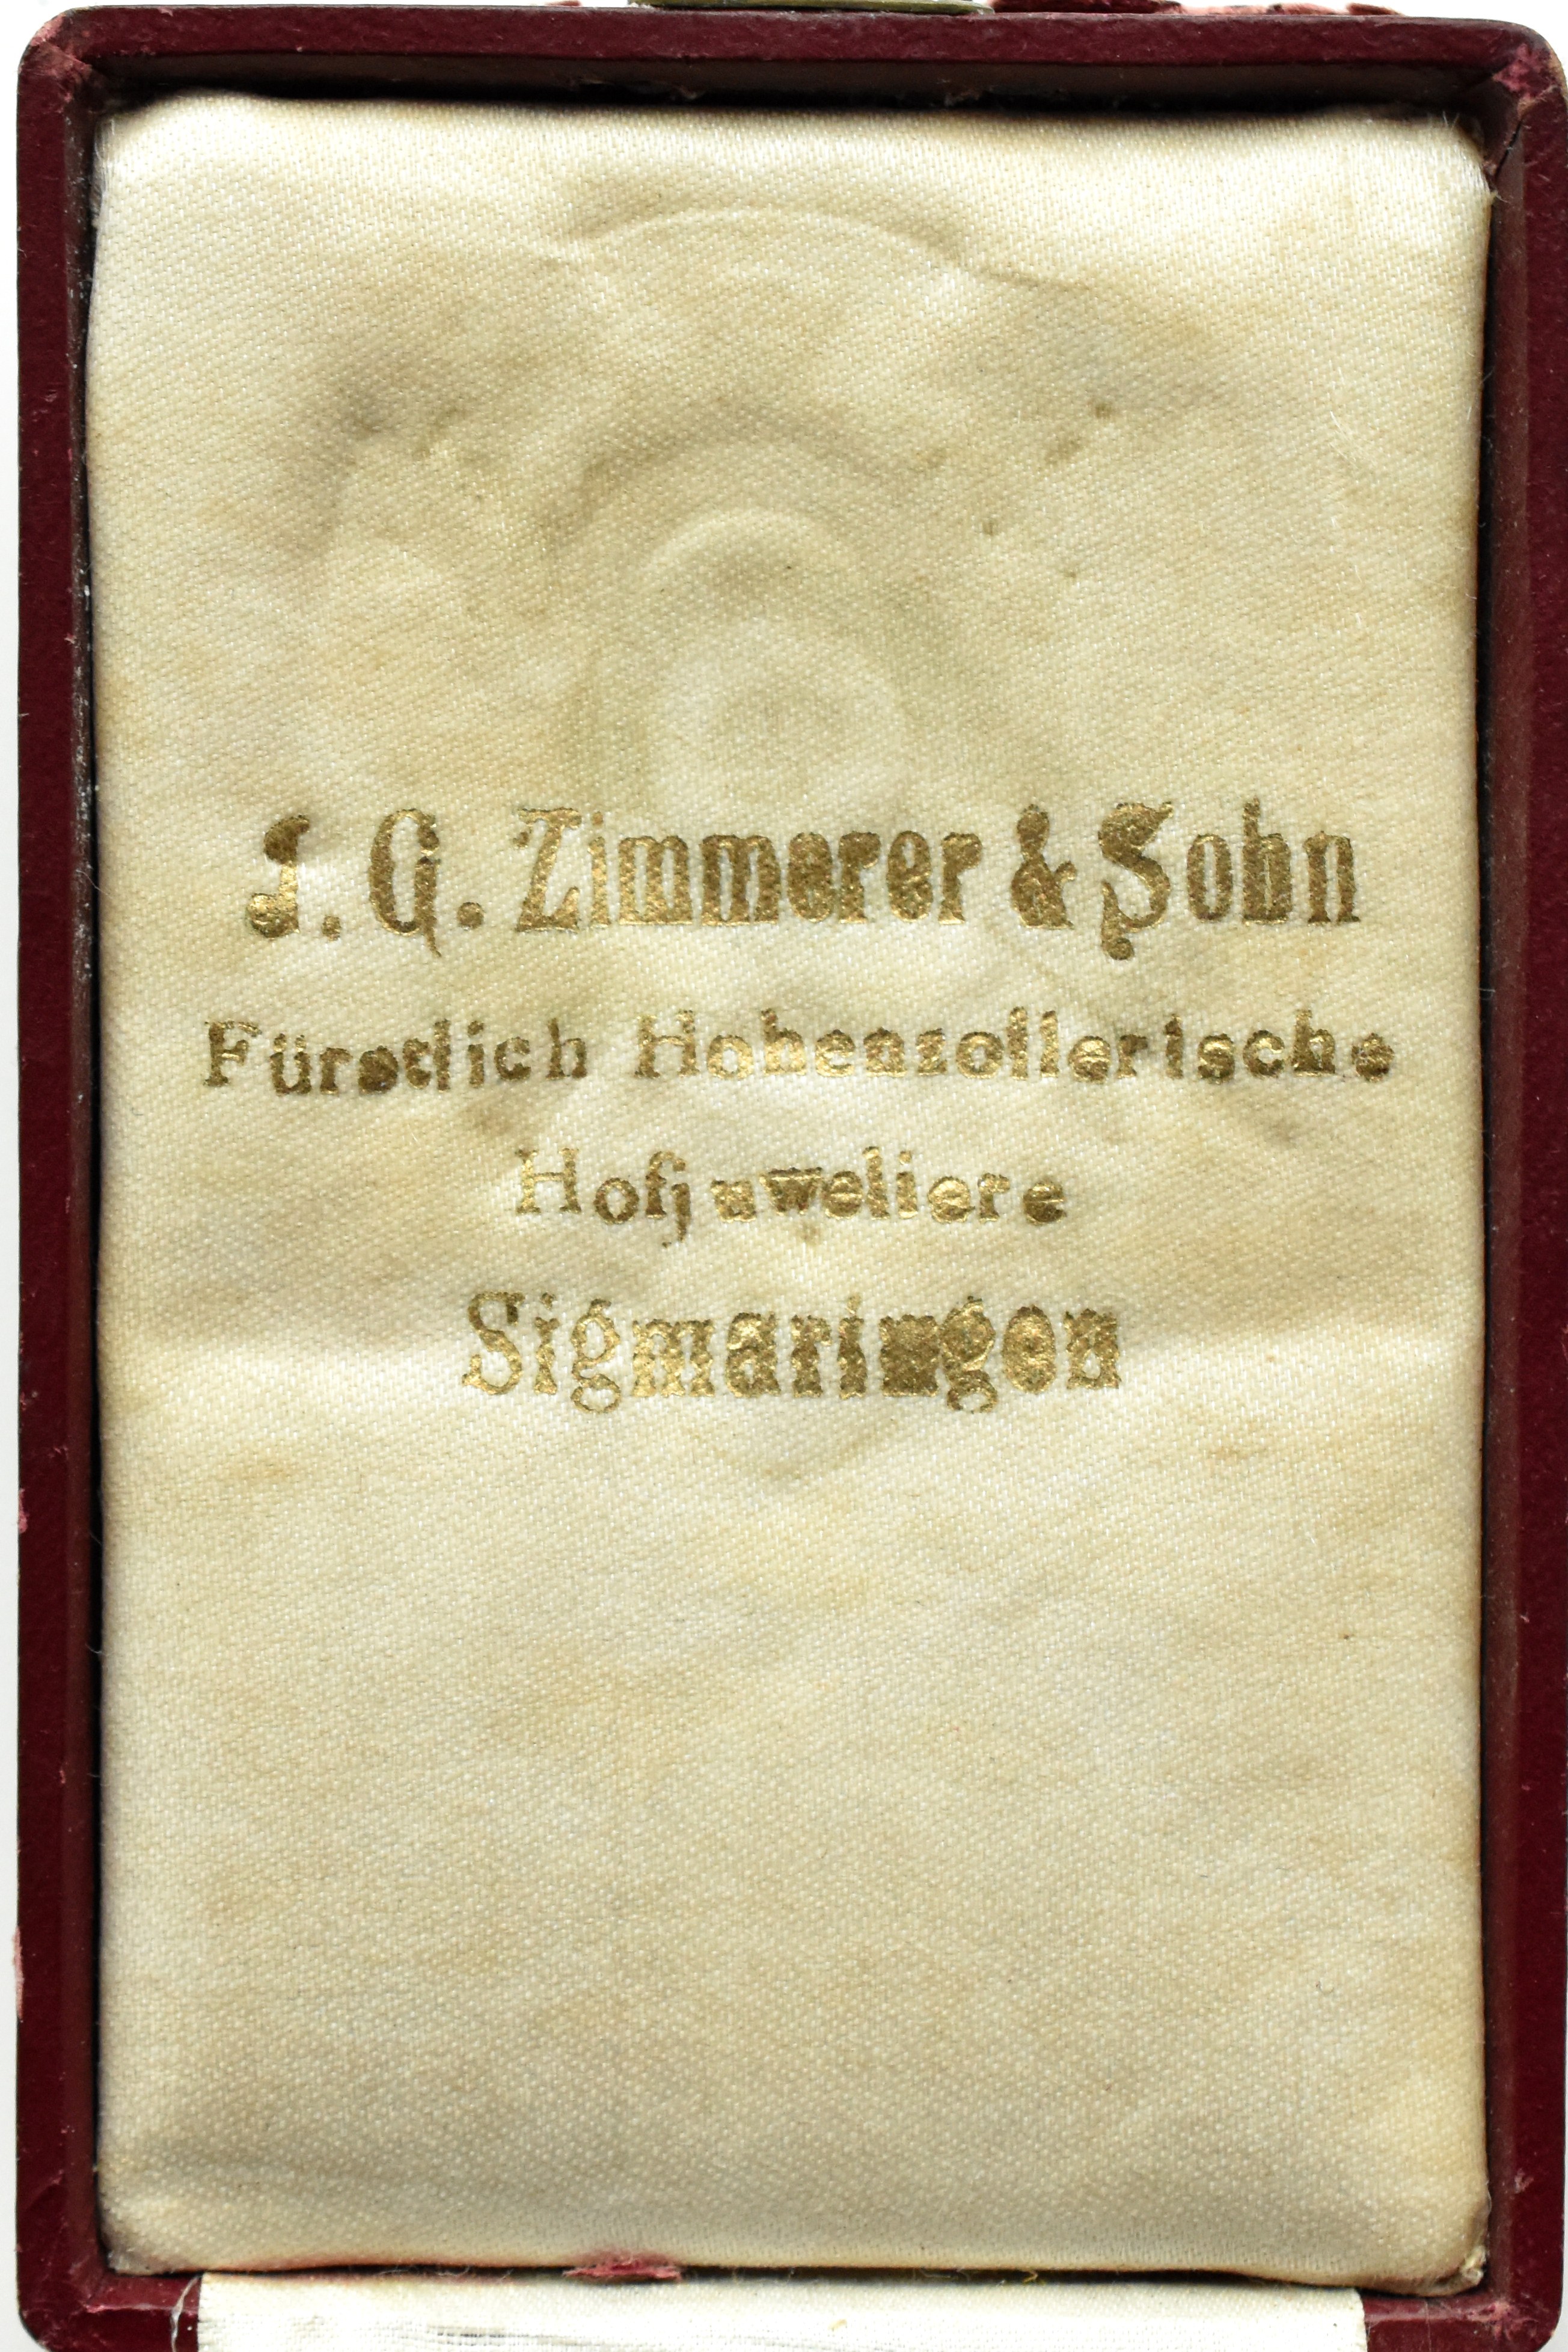 J. G. Zimmerer & Sohn
Fürstlich Hohenzollerische
Hofjuweliere
Sigmaringen